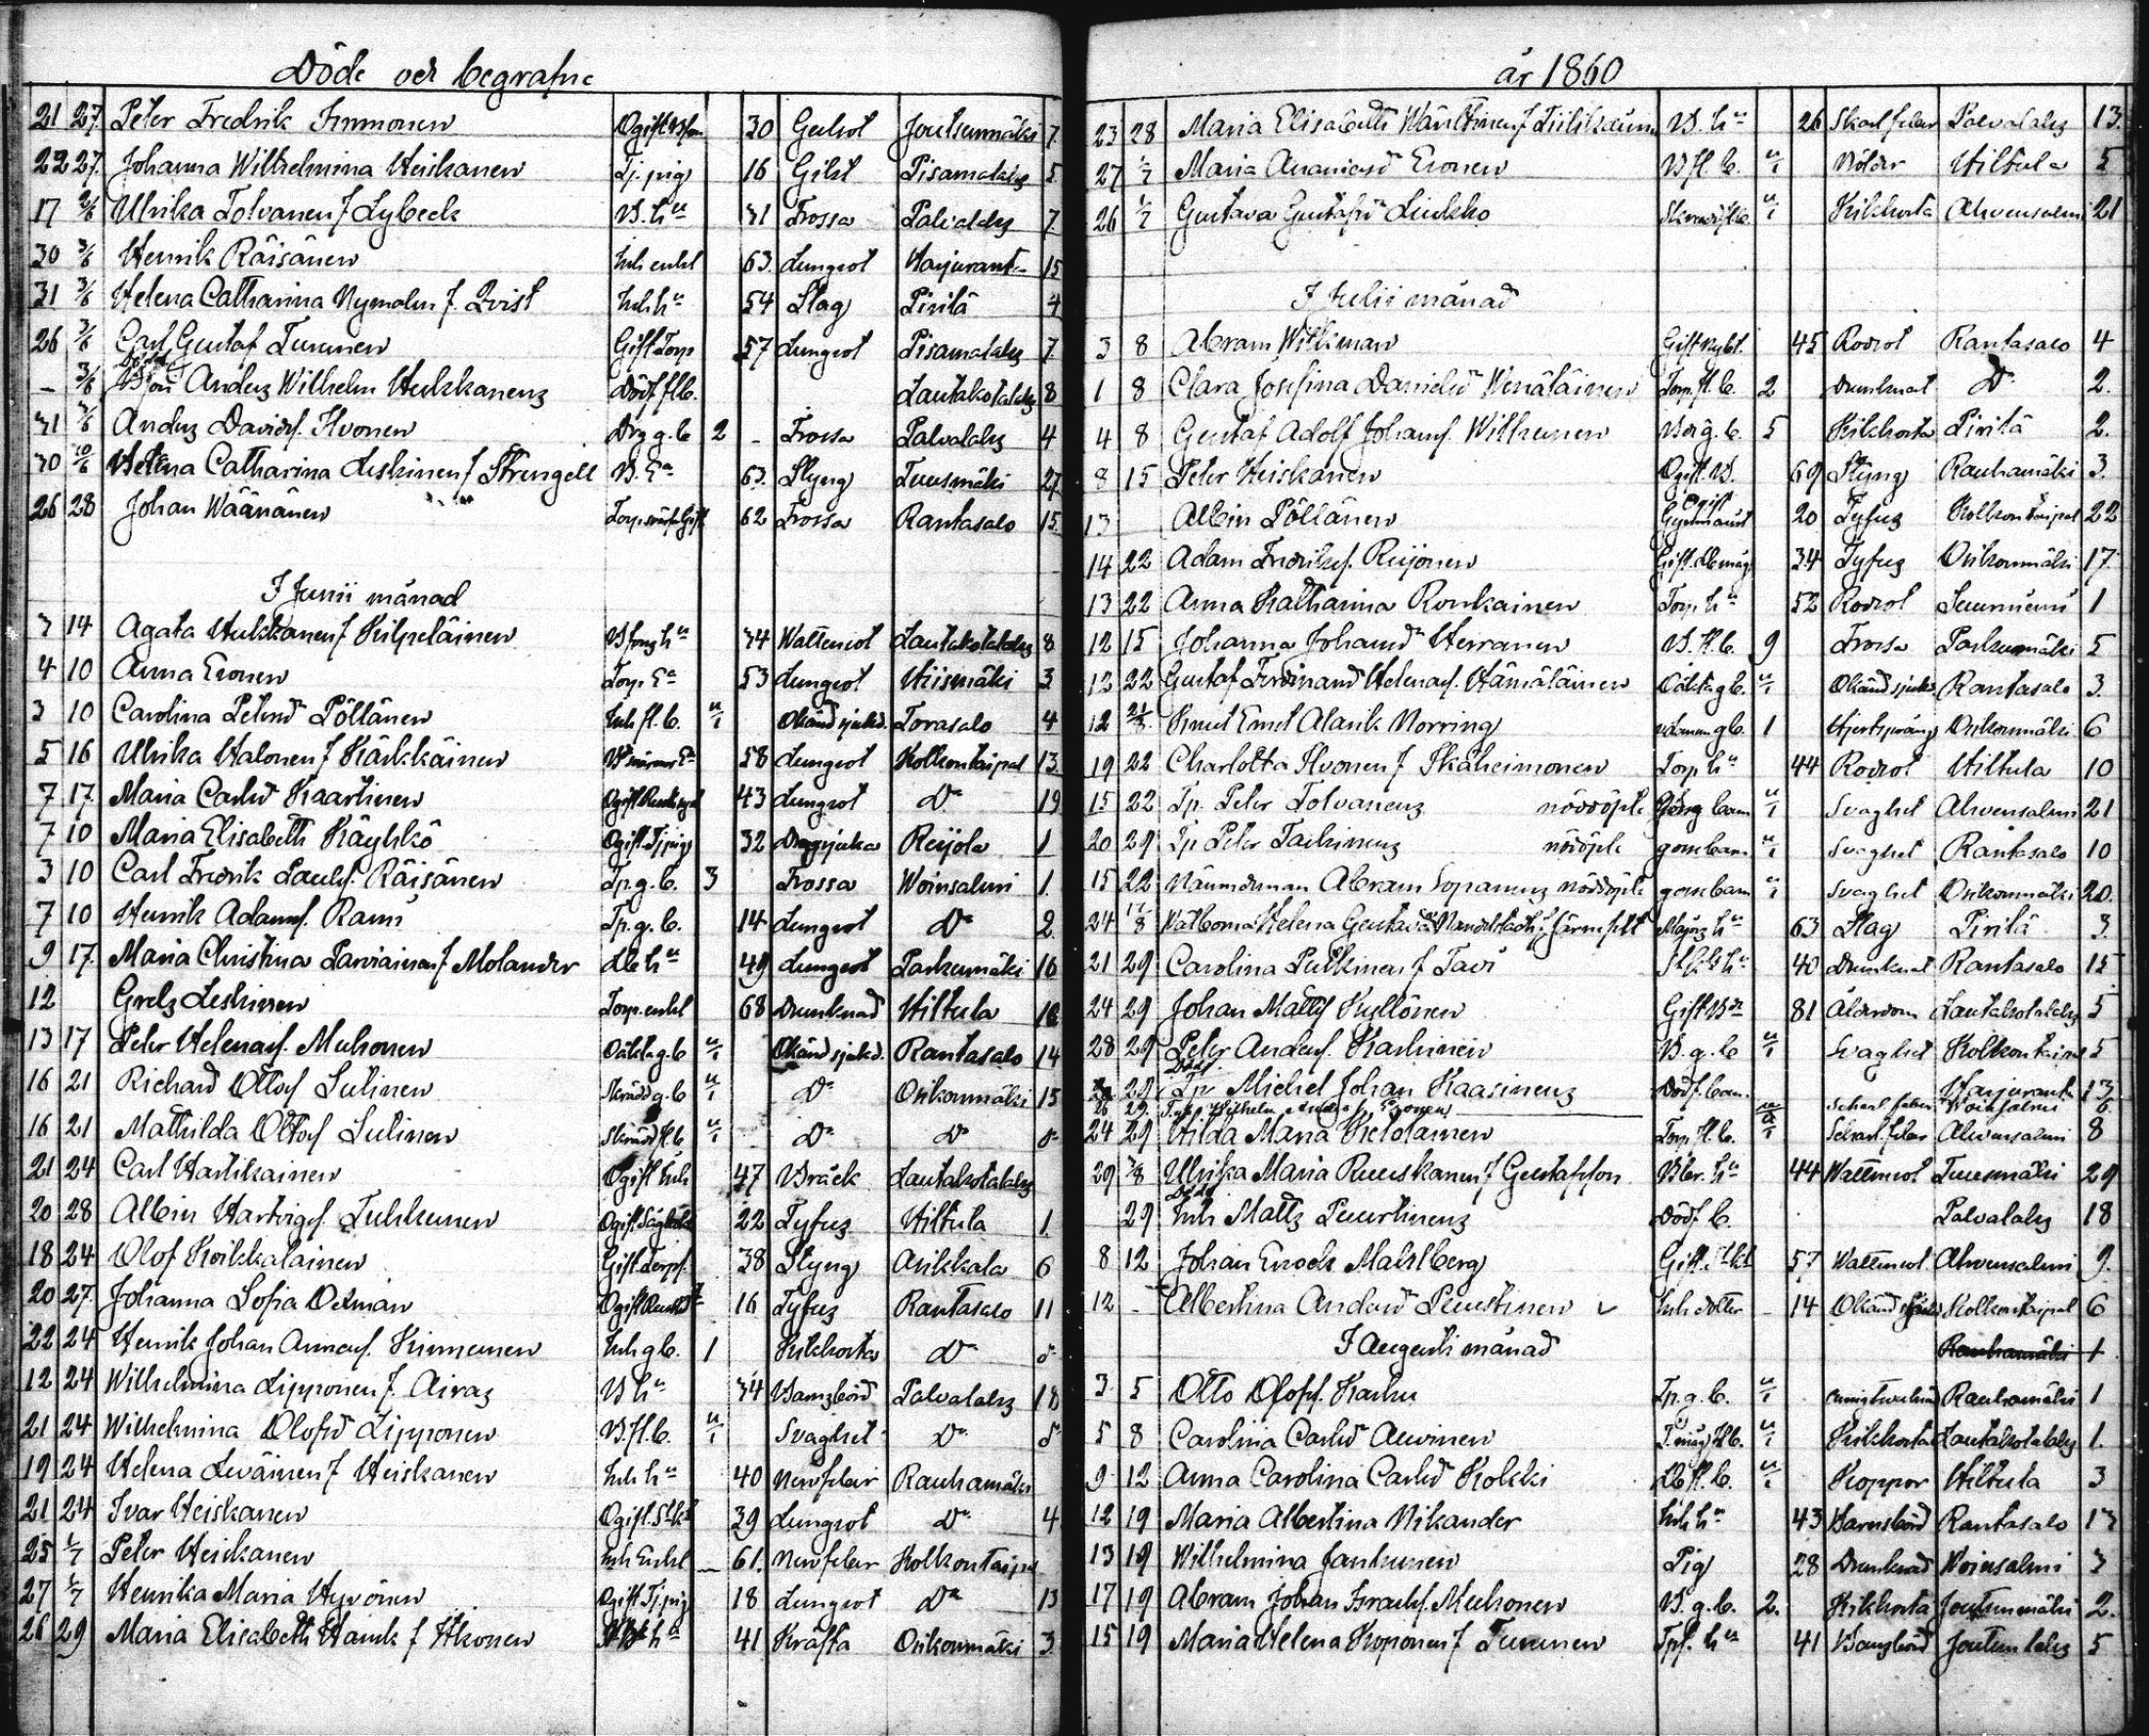 Döde och begrafne
21 27 Peter Fredrik Immonen 30 Gulsot Joutsenmäki 7.
22 27. Johanna Wilhelmina Heiskanen Tj. pig 16 Gikt Pisamalaks 5.
17 2/6 Ulrika Tolvanen f Lybeck B. hu 31 Trossa 7.
30 3/6 Henrik Räisänen Inh enkl 63. Lungsot Harjurant- 15
31 3/6 Helena Catharina Nyman f. Qvist Inh hu 54 Slag Pirilä 4
26 3/6 Carl Gustaf Turunen Gift Torp 57 Lungsot Pisamalaks 7.
- 3/6 Anders Wilhelm Hukkanens Dödf flb. Lautakotalaks 8
31 3/6 Anders Davids. Ihvonen g. b 2 - Trossa Palvalaks 4
30 10/6 Helena Catharina Leskinen f Strengell B. Ea 63. Styng Tuusmäki 27
26 28 Johan Wäänänen Gift 62 Trossa Rantasalo 15.
I Junii månad
3 14 Agata Hukkanen f Kilpeläinen hu 74 Wattusot Lautakotalaks 8
4 10 Anna Eronen Torp Ea 53 Lungsot Hiismäki 3
3 10 Carolina Petersdr Pöllänen Inh fl. b. u/1 Okänd sjukd. Torasalo 4
5 16 Ulrika Halonen f Kärkkäinen Ea 58 Lungsot Kolkontaipal 13.
7 17. Maria Carlsd Kaartinen Ogift 43 Lungsot Do 19
7 10 Maria Elisabeth Käyhkö Ogift Tjpig 32 Dragsjuka Reijola 1
3 10 Carl Fredrik Paulss. Räisänen Tp. g. b. 3 Trossa Woinsalmi 1.
7 10 Henrik Adams. Rami Tp. g. b. 14 Lungsot Do 2
9 17. Maria Christina Parviainen f Molander Lb hu 49 Lungsot Parkumäki 16
12 Grels Leskinen Torp. enkl 68 Drunknad Hiltula 16
13 17 Peter Helenas. Muhonen Oäkta g. b u/1 Okänd sjukd. Rantasalo 14
16 21 Richard Ottos Sutinen Skrädd g. b u/1 Do Oikonmäki 15
16 21 Mathilda Ottos Sutinen Skrädd fl. b u/1 Do Do
21 24 Carl Hartikainen Ogift Inh 47 Bråck Lautakotalaks
20 28 Albin Hartvigs. Tuhkunen Ogift 22 Tyfus Hiltula 1.
18 24 Olof Koikkalainen Gift Torp. 38 Styng Anikkala 6
20 27. Johanna Sofia Oxman Ogift 16 Tyfus Rantasalo 11
22 24 Henrik Johan Annas. Kinnunen Inh g b. 1 Kikhosta Do
12 24 Wilhelmina Lipponen f. Airas B hu 34 Barnsbörd Palvalaks 18
21 24 Wilhelmina Olofsd Lipponen B. fl. b. u/1 Svaghet Do
19 24 Helena Leväinen f Heiskanen Inh hu 40 Nervfeber Rauhamäki
21 24 Ivar Heiskanen Ogift 39 Lungsot Do 4
25 1/7 Peter Heiskanen Inh Enkl 61. Nervfeber Kolkontaipa
27 1/7 Henrika Maria Hyvönen Ogift Tj. pig 18 Lungsot Do 13
26 29 Maria Elisabeth Hauk f Ikonen hu 41 Kräfta Oikonmäki 3
år 1860
23 28 Maria Elisabeth f Tiilikain B. hu 26 Skarl feber Palvalaks 13.
27 1/7 Maria Ananiasd Eronen B fl. b. u/1 Hiltula 5
26 1/7 Gustava Gustafsdr Liukko u/1 Kikhosta Ahvensalmi 21
I Julii månad
3 8 Abram Wilkman Gift nybt. 45 Rodsot Rantasalo 4
1 8 Clara Josefina Danielsd Venäläinen Torp. fl. b. 2 Drunknat Do 2.
4 8 Gustaf Adolf Johans. Wilhunen g. b. 5 Kikhosta Pirilä 2.
8 15 Peter Heiskanen Ogift. B. 69 Styng Rauhamäki 3.
13 Albin Pöllänen Ogift Gymnasist 20 Tyfus Kolkontaipal 22
14 22 Adam Fredriks. Reijonen Gift. 34 Tyfus Oikonmäki 17.
13 22 Anna Katharina Ronkainen Torp hu 52 Rodsot 1
12 15 Johanna Johansdr Herranen B. fl. b. 9 Trossa Parkumäki 5
12 22 Gustaf Ferdinand Helenas. Hämäläinen Oäkta g b. u/1 Okänd sjukd Rantasalo 3.
12 21/8 Knut Ernst Alarik Norring g b. 1 Hjertspräng Oikonmäki 6
19 22 Charlotta Ihvonen f Ikäheimonen Torp hu 44 Rodsot Hiltula 10
15 22 Tp. Peter Tolvanens nöddöpte barn u/1 Svaghet Ahvensalmi 21
20 29 Tp Peter Tarkinens nöddöpte gossebarn u/1 Svaghet Rantasalo 10
15 22 Nämndeman Abram Sopanens nöddöpte gossebarn u/1 Svaghet Oikonmäki 20.
24 12/8 Helena f Järnefelt Majors hu 63 Slag Pirilä 3.
21 29 Carolina Pulkinen f Tavi hu 40 Drunknat Rantasalo 15
24 29 Johan Matts Kyllönen Gift 81 Ålderdom Lautakotalaks 5
28 29 Peter Anders. Karhinen B. g. b u/1 Svaghet Kolkontaipal 5
29 Dödf. Tp Michel Johan Kaasinens Dödf. barn Harjurant 13
26 29. Wilhelm Anders. Eronens Scharl feber Woinsalmi 6.
24 29 Hilda Maria Kelolainen Torp. fl. b. Scharl. feber Ahvensalmi 8
29 5/8 Ulrika Maria Ruuskanen f Gustafsson hu 44 Wattusot Tuusmäki 29
29 Dödf Inh Matts Puurtinens Dödf. b. Palvalaks 18
8 12 Johan Enock Mahlberg Gift. 57 Wattusot Ahvensalmi 9.
12 - Albertina Andersd Puustinen Inh dotter - 14 Okänd sjukd Kolkontaipal 6
I Augusti månad Rauhamäki 1
3 5 Otto Olofs. Karhu Tp. g. b. u/1 Rauhamäki 1
5 8 Carolina Carlsd Auvinen fl b. u/1 Kikhosta Lautakotalaks 1.
9 12 Anna Carolina Carlsd Kokki Lb fl. b. u/1 Koppor Hiltula 3
12 19 Maria Albertina Nikander Inh hu 43 Barnsbörd Rantasalo 13
13 19 Wilhelmina Jantunen Pig 28 Drunknad Woinsalmi 3
17 19 Abram Johan Israels. Muhonen B. g. b. 2. Kikhosta Joutsenmäki 2.
15 19 Maria Helena Koponen f Turunen Tpf. hu 41 Barnsbörd 5